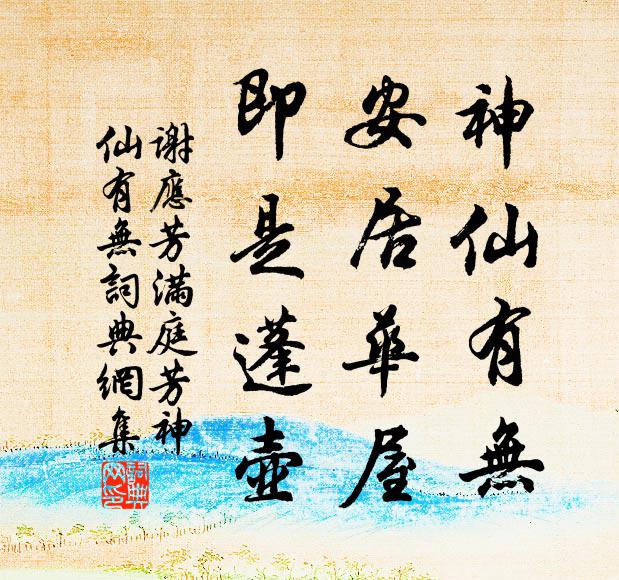 神仙有無
安居華屋
即是蓬壺
謝應芳滿庭芳神
仙有無詞典網集